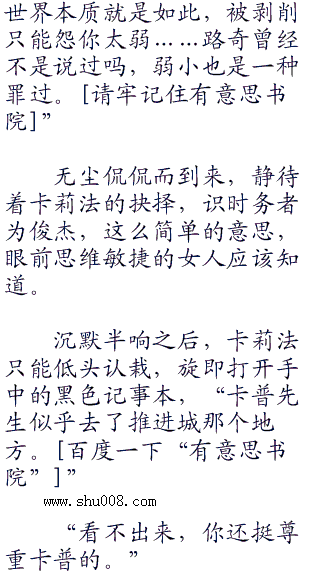 世界本质就是如此，被剥削
只能怨你太弱……路奇曾经
不是说过吗，弱小也是一种
罪过。[请牢记住有意思书
院]”
无尘侃侃而到来，静待
着卡莉法的抉择，识时务者
为俊杰，这么简单的意思，
眼前思维敏捷的女人应该知
道。
沉默半响之后，卡莉法
只能低头认栽，旋即打开手
中的黑色记事本，“卡普先
生似乎去了推进城那个地
方。[百度一下“有意思书
院”]”
www.shu008.com
“看不出来，你还挺尊
重卡普的。”